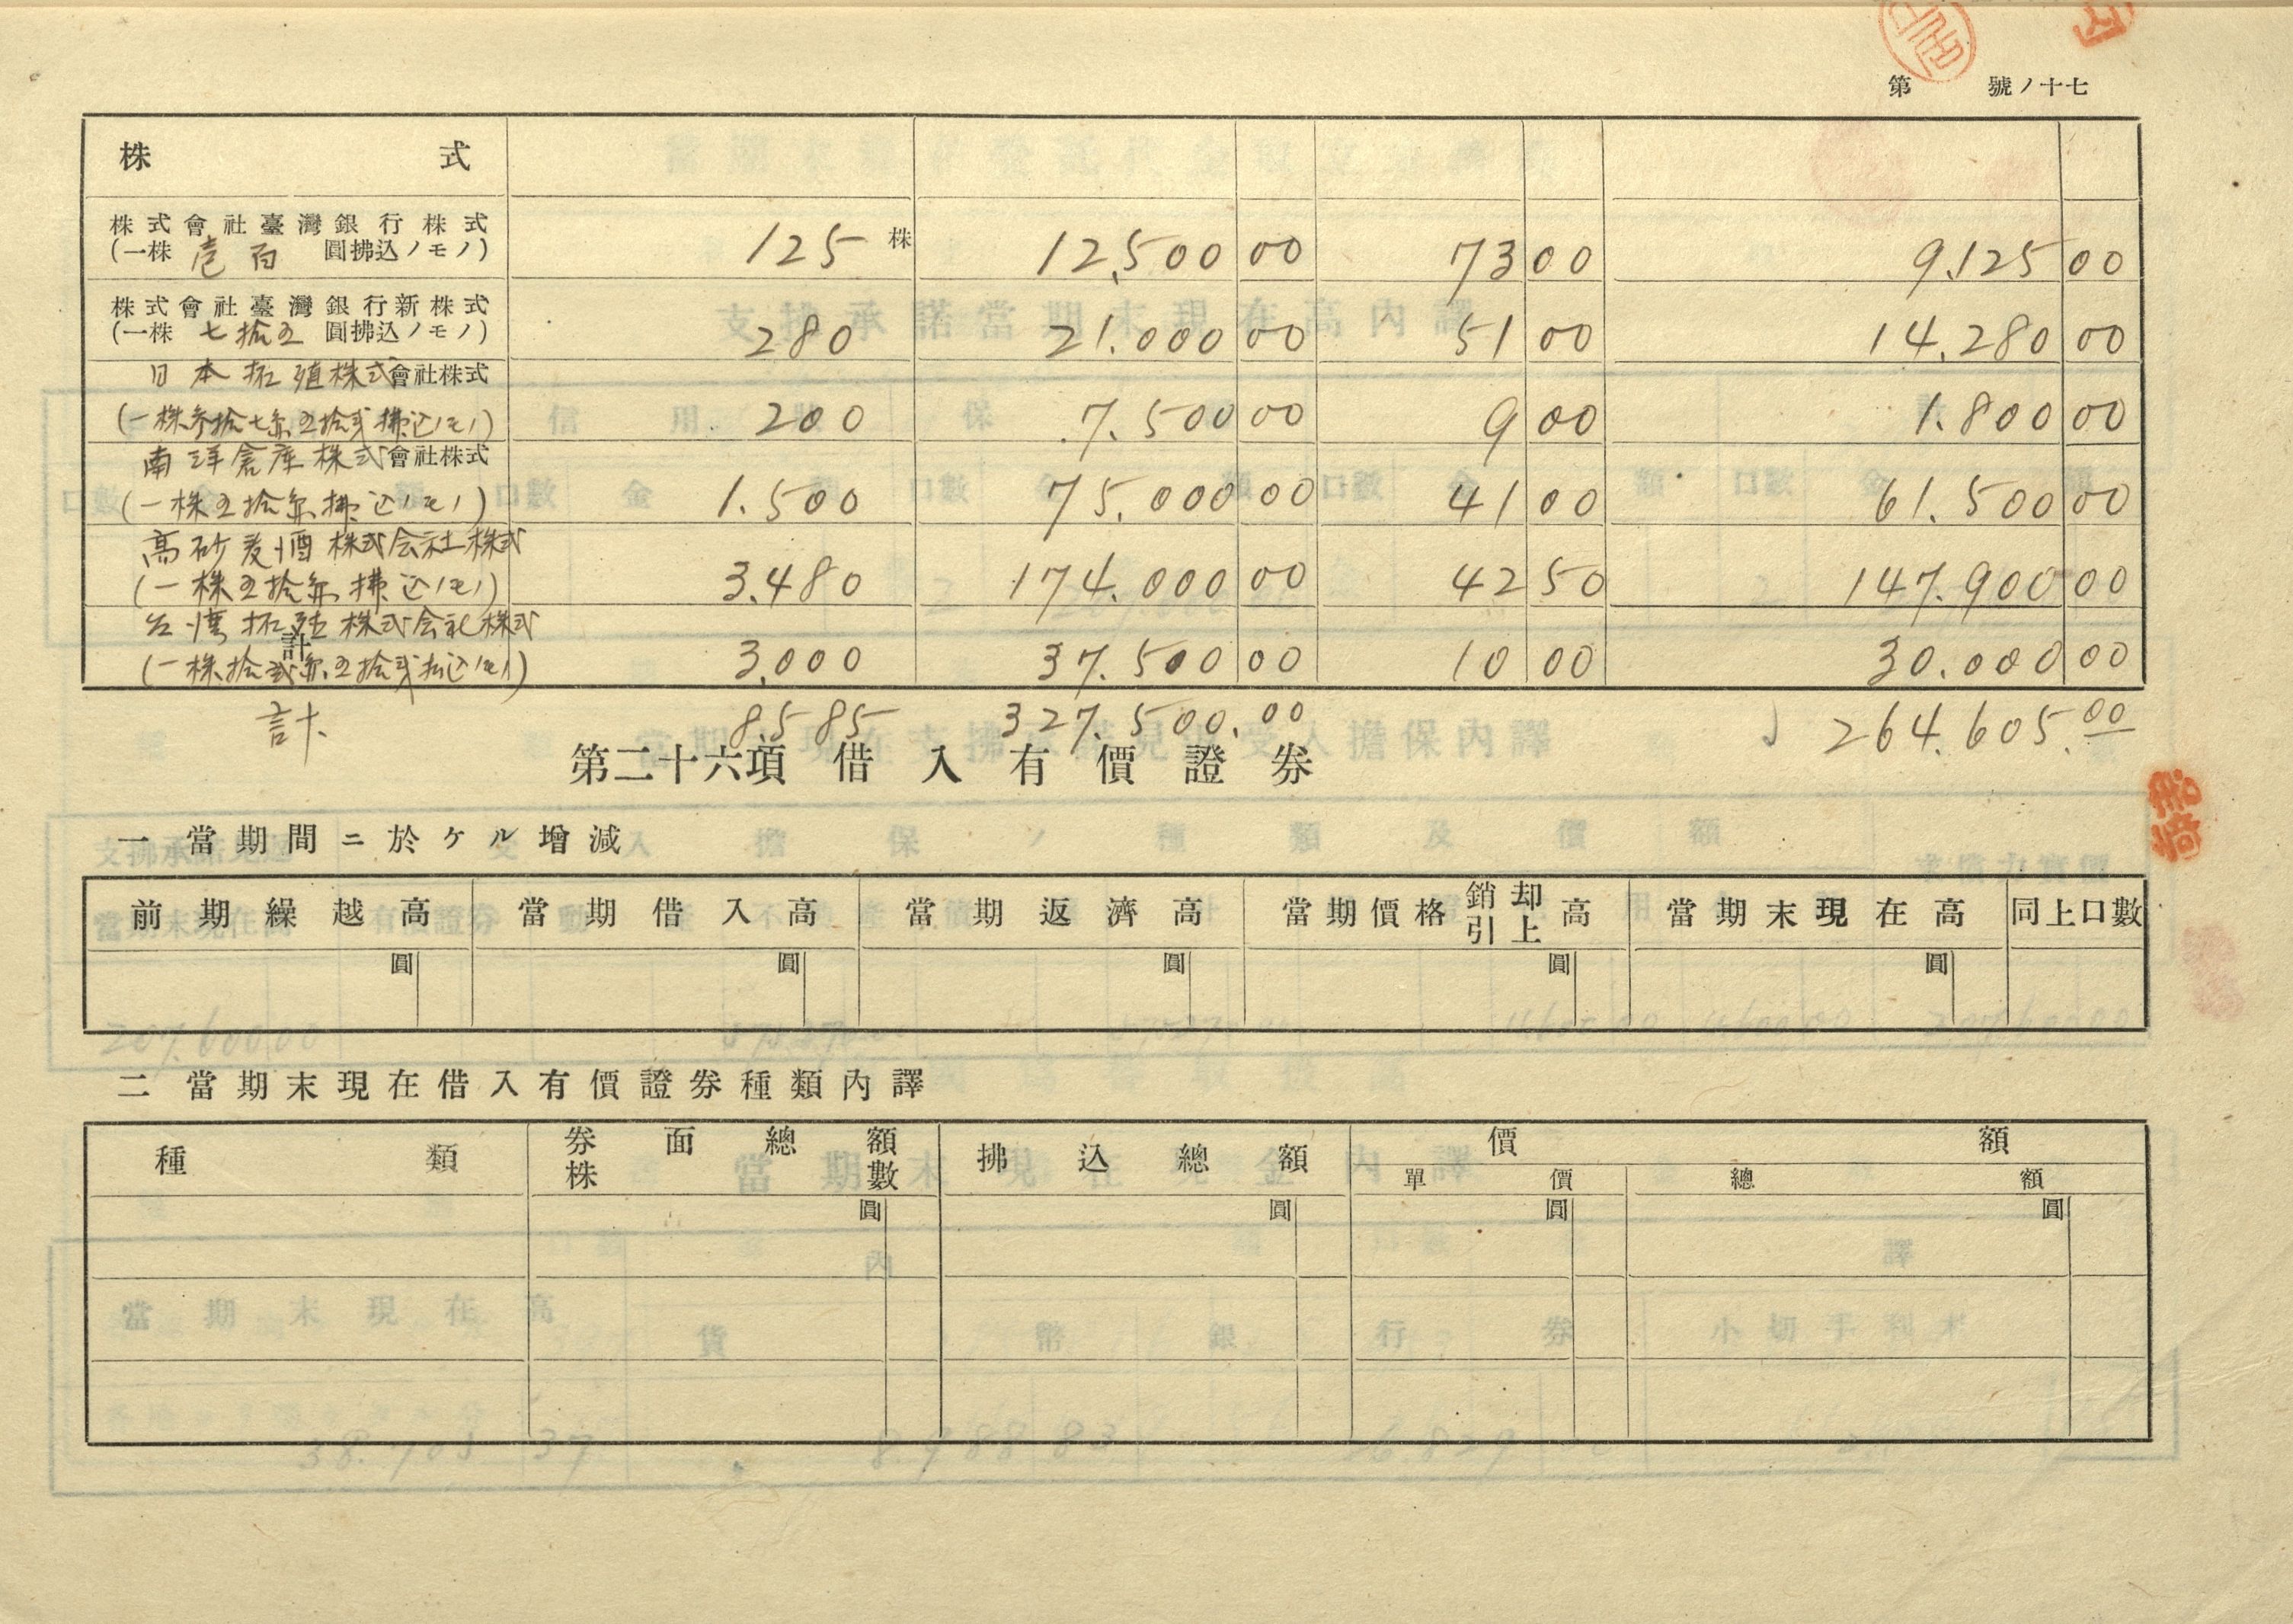 第　　號ノ十七
株　式
株式會社臺灣銀行株式
(一株 壱百 圓拂込ノモノ) 125株 12,500 00 73 00 9.125 00
株式會社臺灣銀行新株式
(一株 七拾五 圓拂込ノモノ) 280 21.000 00 51 00 14.280 00
日本拓殖株式會社株式
(一株参拾七円五拾戔拂込ノモノ) 200 7.500 00 9 00 1.800 00
南洋倉庫株式會社株式
(一株五拾円拂込ノモノ) 1.500 75.000 00 41 00 61.500 00
高砂麦酒株式会社株式
(一株五拾円拂込ノモノ) 3.480 174.000 00 42 50 147.900 00
台湾拓殖株式会社株式
計
(一株拾弐円五拾戔払込ノモノ) 3.000 37.500 00 10 00 30.000 00
計 8.585 327.500.00 264.605.00
第二十六項　借入有價證券
一　當期間ニ於ケル増減
前期繰越高 當期借入高 當期返濟高 當期價格銷却引上高 當期末現在高 同上口數
圓 圓 圓 圓 圓
二　當期末現在借入有價證券種類內譯
種類 券面總額 拂込總額 價額
株數
單價 總額
圓 圓 圓 圓